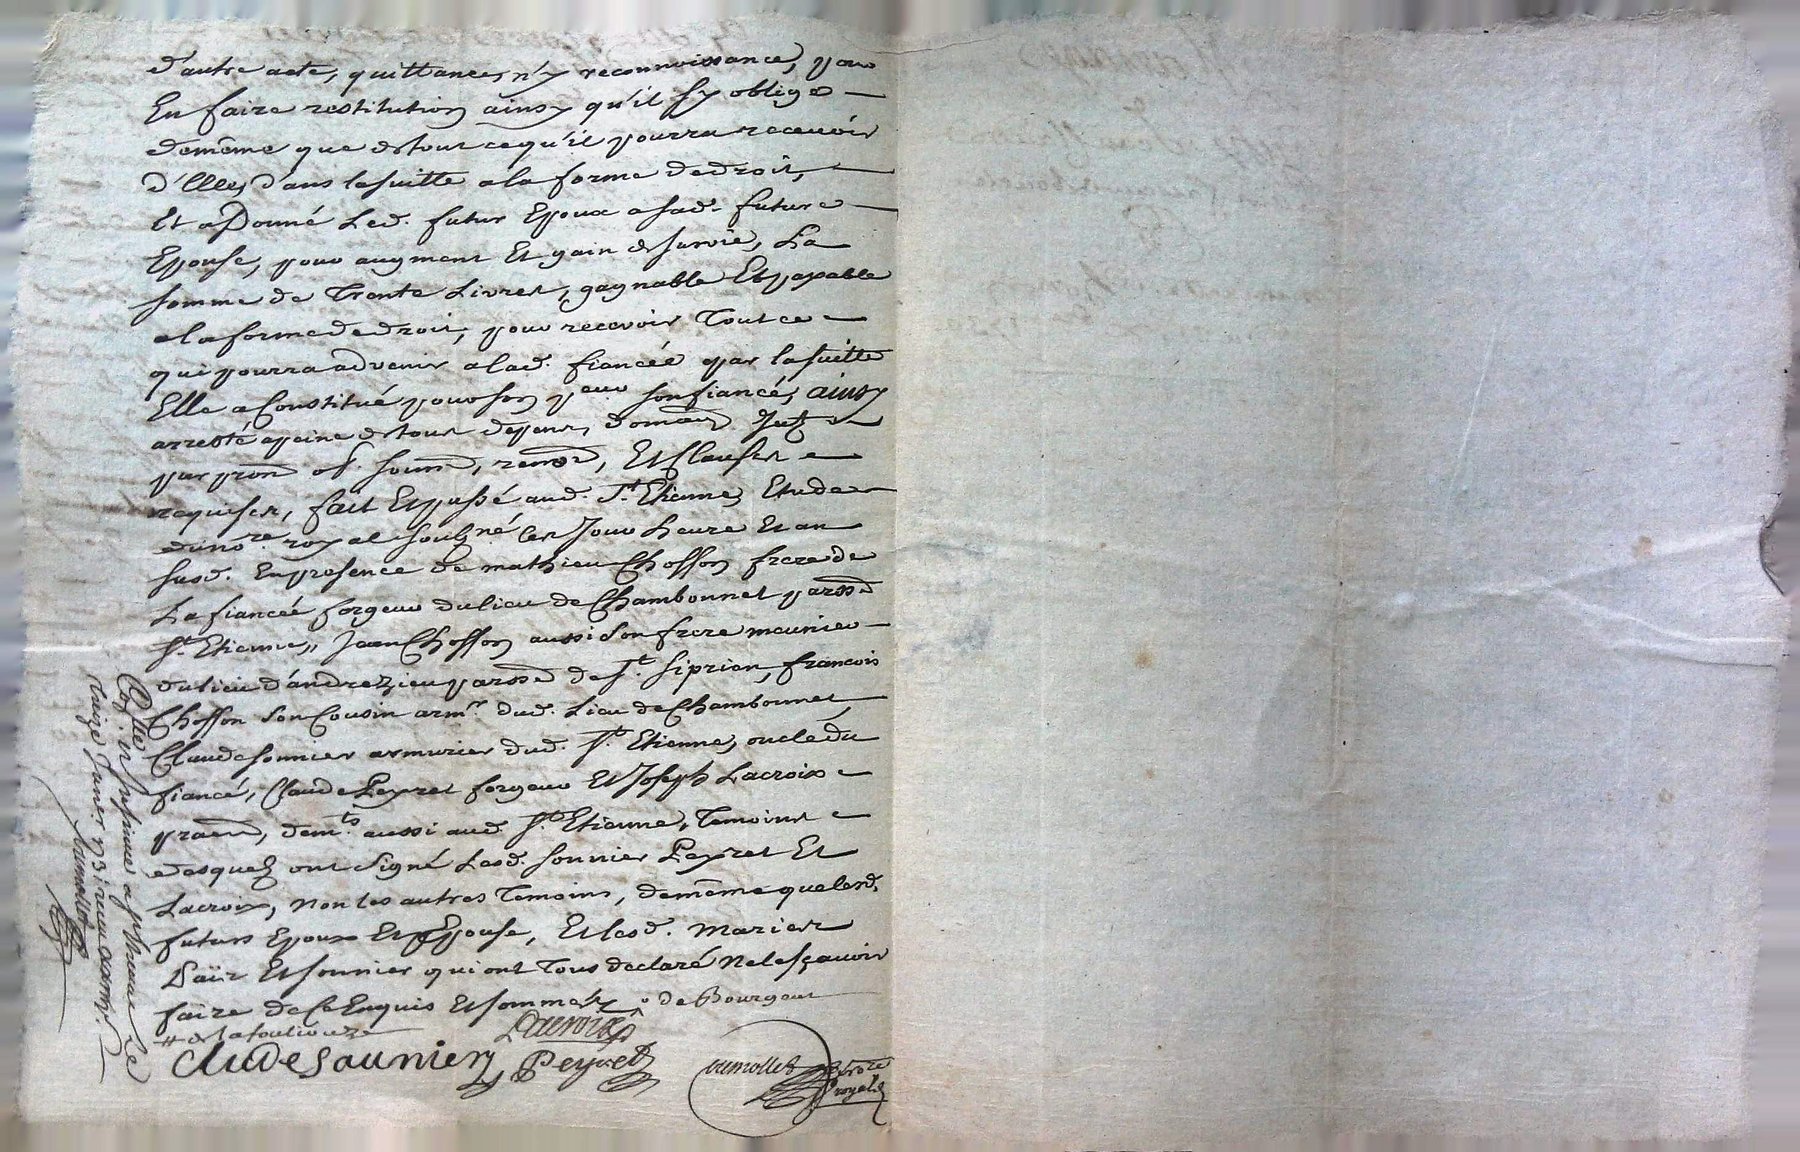 d'autre acte, quittances n'y reconnoissance, pour
En faire restitution ainsy qu'il s'y oblige
demême que de tout ce qu'il pourra recevoir
d'Elle, dans la suitte a la forme de droit,
Et a Donné Led. futur Epoux a sad. future
Epouse, pour augment Et gain de survie, La
somme de Trente Livres, gagnable Et payable
a la forme de droit, pour recevoir Tout ce
qui pourra advenir a lad. fiancée par la suitte
Elle a Constitué pour son peur son fiancé, ainsy
arresté a peine de tous depens, domages Intz
par prom obl. soum, renon, Et Clauses
requises, fait Et passé aud. St. Etienne, Etude
du nore. royal soubzné Les Jour heure Et an
susd. En presence de mathieu Choffon frere de
La fiancée forgeur du lieu de Chambonnet parsse
St. Etienne, Jean Choffon aussi son frere meunier
du lieu d'andrezieu parsse de St. Siprien, francois
Choffon son Cousin armr. dud. Lieu de Chambonnet
Claude sonnier armurier dud. St. Etienne, oncle du
fiancé, Claude Peyret forgeur Et Joseph Lacroix
pracn, demts. aussi aud. St. Etienne, Temoins
desquelz ont signé Lesd. sonnier Peyret Et
Lacroix, Non les autres Temoins, demême que lesd.
futurs Epoux Et Epouse, Et lesd. Marier
Et sonnier qui ont Tous declaré Ne le sçavoir
faire de Ce Enquis Et sommés de Bourgeat
# de la fouliouze
Lacroix
Claude Saunier Peyret
notre
royal
Collé et Insinué a St. Etienne Le